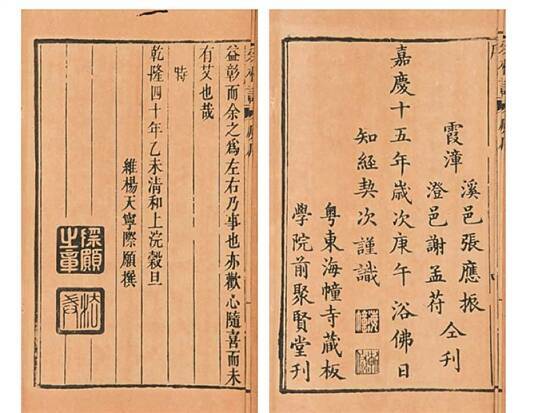 溪邑張應振
霞漳
澄邑謝孟苻
仝刊
嘉慶十五年歲次庚午浴佛日
知經契次謹識
粤東海幢寺藏板
學院前聚賢堂刊
益彰而余之爲左右乃事也亦歡心隨喜而未
有艾也哉
時
乾隆四十年乙未清和上浣穀旦
維楊天寧際願撰
際願之章